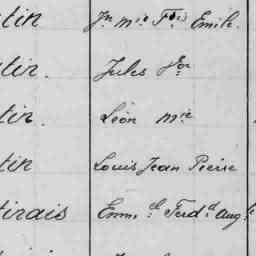 tin Jn Mie Fois Emile.
tin. Jules Vor
tin. Léon Mie
tin Louis Jean Pierre
tirais Emm. el Ferd.d Aug.